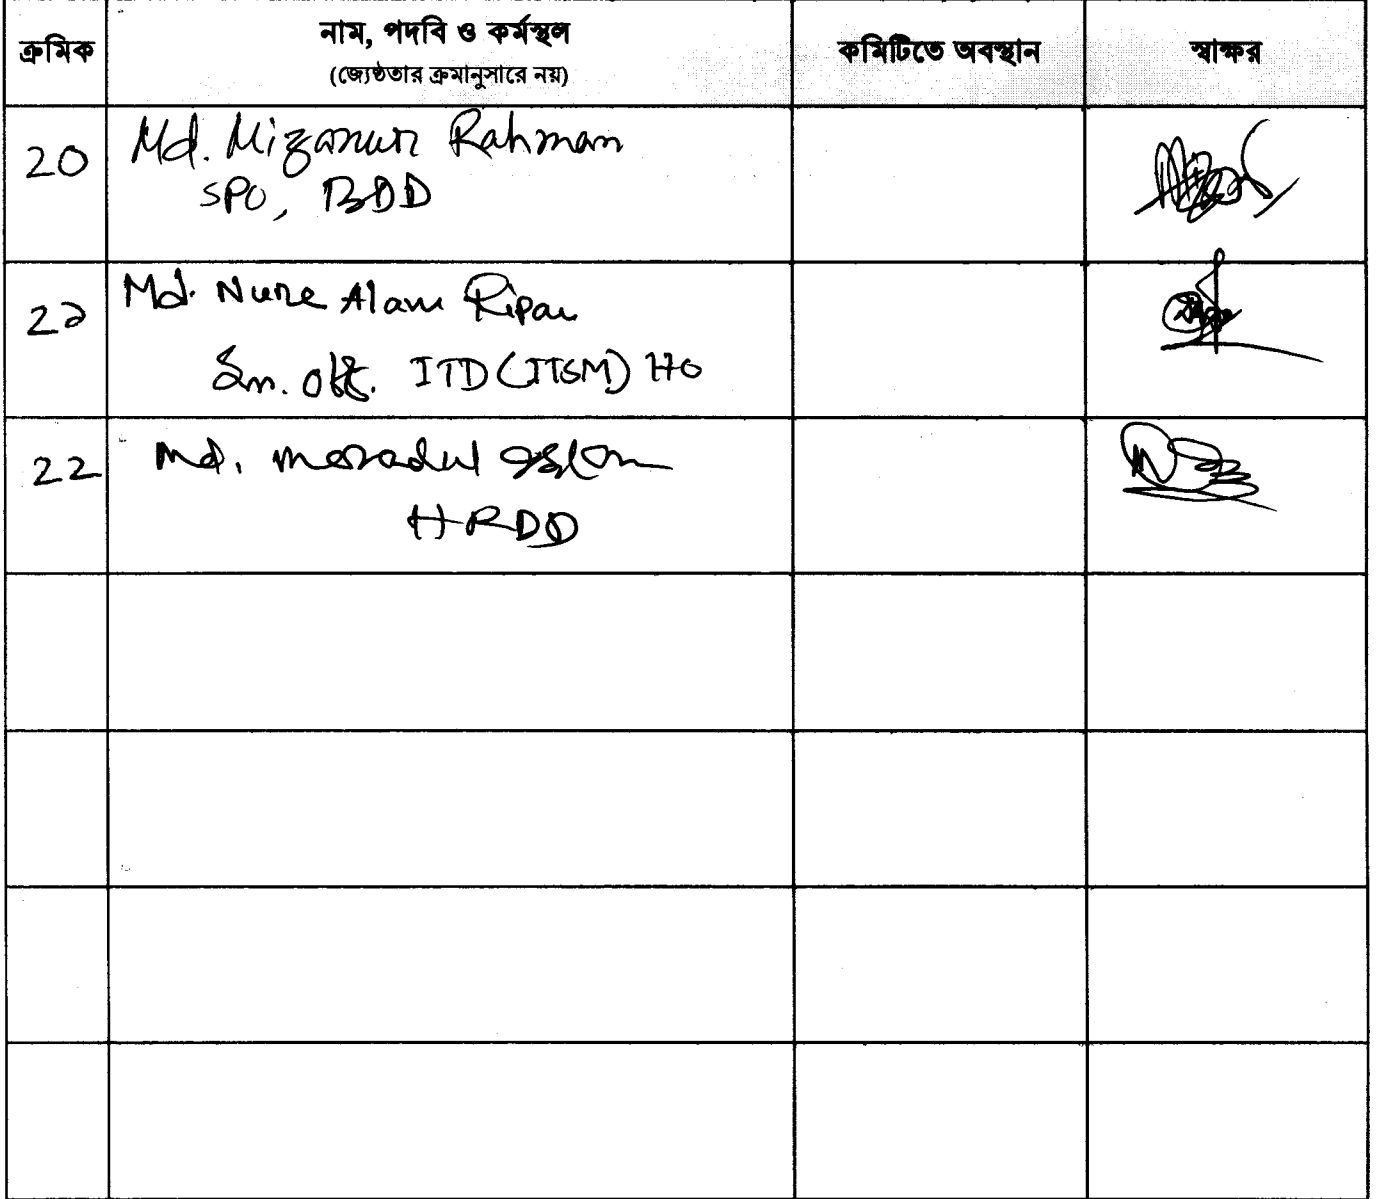 ক্রমিক
নাম, পদবি ও কর্মস্থল
(জ্যেষ্ঠতার ক্রমানুসারে নয়)
কমিটিতে অবস্থান
স্বাক্ষর
২০
Md. Mizanur Rahman
SPO, BDD
২১
Md. Nure Alam Ripan
Sr. Off. ITD (ITSM) HO
২২
Md. Moradul Islam
HRDD